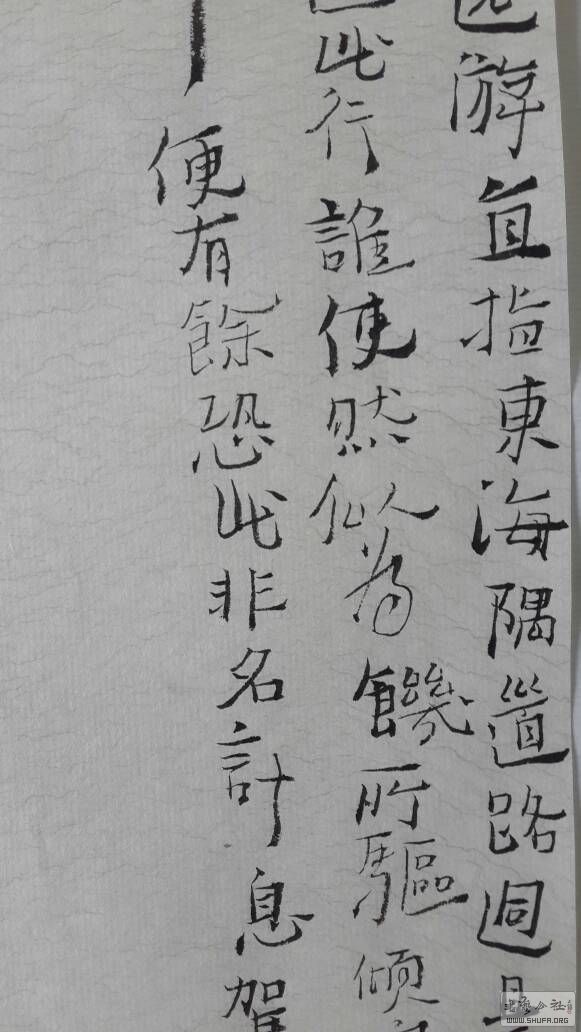 遊直指東海隅道路迴
此行誰使然似為饑所驅傾
便有餘恐此非名計息駕
WWW.SHUFA.ORG